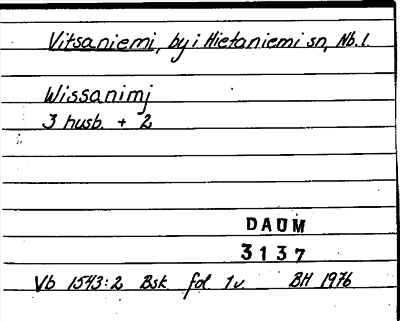 Vitsaniemi, by i Hietaniemi sn, Nb.l.
Wissanimj
3 husb. + 2
DAUM
3137
Vb 1543:2 Bsk fol 1v. BH 1976